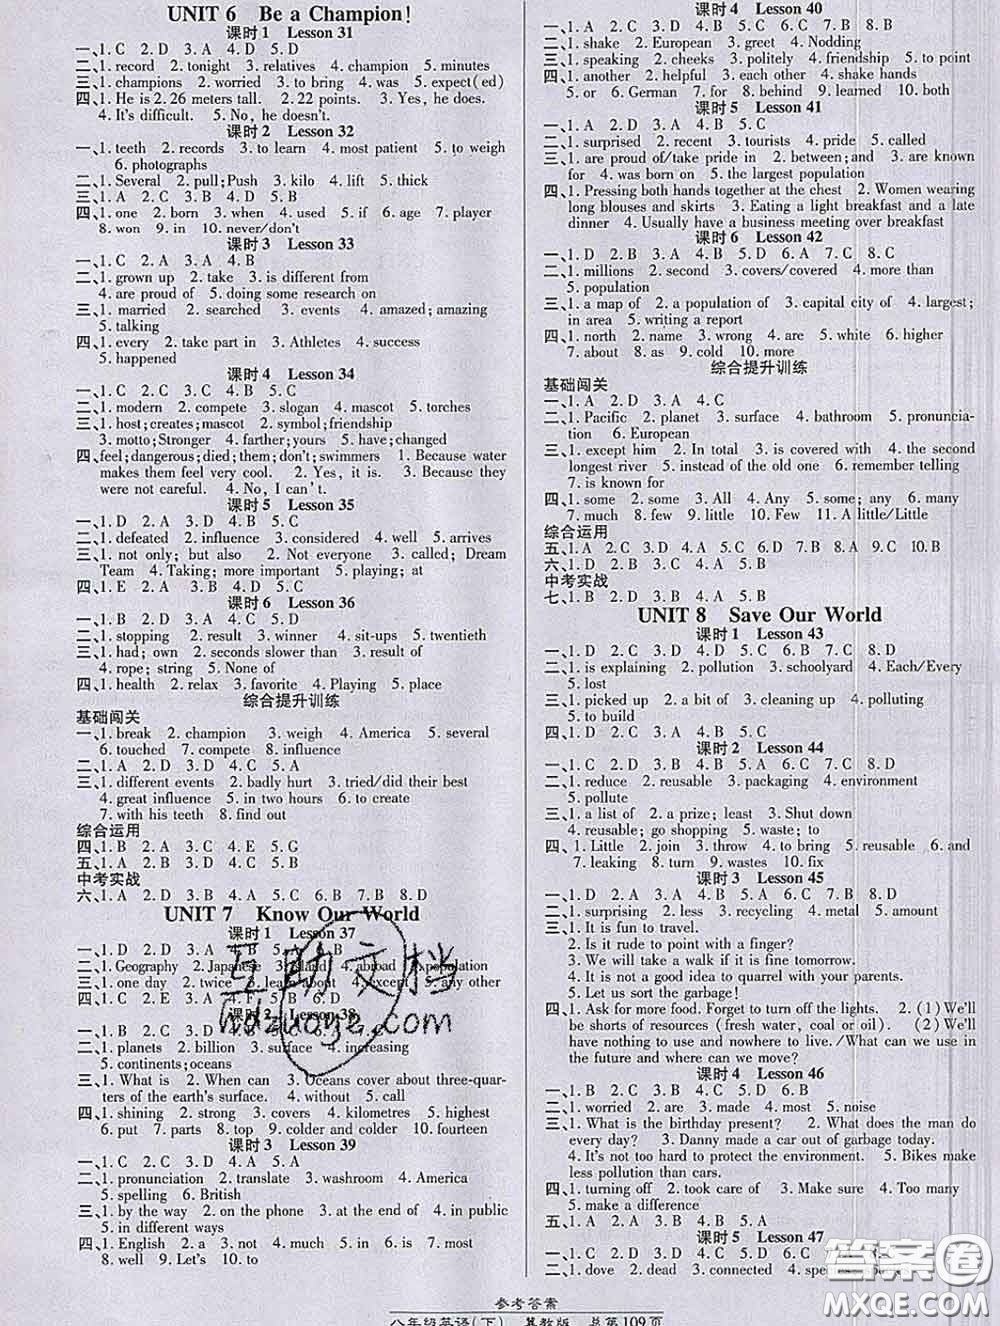 UNIT 6 Be a Champion!
课时1 Lesson 31
一、1. C 2. D 3. A 4. D 5. D
二、1. record 2. tonight 3. relatives 4. champion 5. minutes
三、1. champions 2. worried 3. to bring 4. was 5. expect(ed)
四、1. He is 2.26 meters tall. 2. 22 points. 3. Yes, he does.
4. It's difficult. 5. No, he doesn't.
课时2 Lesson 32
一、1. teeth 2. records 3. to learn 4. most patient 5. to weigh
6. photographs
二、1. Several 2. pull; Push 3. kilo 4. lift 5. thick
三、1. A 2. C 3. A 4. D 5. B
四、1. one 2. born 3. when 4. used 5. if 6. age 7. player
8. won 9. in 10. never/don't
课时3 Lesson 33
一、1. C 2. D 3. A 4. B
二、1. grown up 2. take 3. is different from
4. are proud of 5. doing some research on
三、1. married 2. searched 3. events 4. amazed; amazing
5. talking
四、1. every 2. take part in 3. Athletes 4. success
5. happened
课时4 Lesson 34
一、1. A 2. C 3. C 4. B 5. C
二、1. modern 2. compete 3. slogan 4. mascot 5. torches
三、1. host; creates; mascot 2. symbol; friendship
3. motto; Stronger 4. farther; yours 5. have; changed
四、feel; dangerous; died; them; don't; swimmers 1. Because water
makes them feel very cool. 2. Yes, it is. 3. Because they
were not careful. 4. No, I can't.
课时5 Lesson 35
一、1. D 2. A 3. D 4. B 5. C
二、1. defeated 2. influence 3. considered 4. well 5. arrives
三、1. not only; but also 2. Not everyone 3. called; Dream
Team 4. Taking; more important 5. playing; at
四、1. E 2. A 3. B 4. D 5. C
课时6 Lesson 36
一、1. C 2. D 3. C 4. A 5. D
二、1. stopping 2. result 3. winner 4. sit-ups 5. twentieth
三、1. had; own 2. seconds slower than 3. result of
4. rope; string 5. None of
四、1. health 2. relax 3. favorite 4. Playing 5. place
综合提升训练
基础闯关
一、1. break 2. champion 3. weigh 4. America 5. several
6. touched 7. compete 8. influence
二、1. A 2. D 3. D 4. C 5. A
三、1. different events 2. badly hurt 3. tried/did their best
4. great influence 5. in two hours 6. to create
7. with his teeth 8. find out
综合运用
四、1. B 2. A 3. C 4. E 5. G
五、1. A 2. B 3. D 4. C 5. A
中考实战
六、1. A 2. D 3. B 4. A 5. C 6. B 7. B 8. D
UNIT 7 Know Our World
课时1 Lesson 37
一、1. D 2. D 3. A 4. B 5. A 6. B
二、1. Geography 2. Japanese 3. island 4. abroad 5. population
三、1. one day 2. twice 3. learn about 4. except 5. any other
四、1. C 2. E 3. F 4. A
课时2 Lesson 38
二、1. planets 2. billion 3. surface 4. increasing
5. continents; oceans
三、1. What is 2. When can 3. Oceans cover about three-quar-
ters of the earth's surface. 4. without 5. call
四、1. shining 2. strong 3. covers 4. kilometres 5. highest
6. put 7. parts 8. top 9. colder and colder 10. fourteen
课时3 Lesson 39
一、1. C 2. C 3. D 4. A 5. A
二、1. pronunciation 2. translate 3. washroom 4. America
5. spelling 6. British
三、1. by the way 2. on the phone 3. at the end of 4. in public
5. in different ways
四、1. English 2. a 3. not 4. much 5. in 6. is 7. most
8. well 9. Let's 10. to
课时4 Lesson 40
一、1. A 2. C 3. D 4. A 5. D 6. C 7. D 8. B
二、1. shake 2. European 3. greet 4. Nodding
三、1. speaking 2. cheeks 3. politely 4. friendship 5. to point
四、1. another 2. helpful 3. each other 4. shake hands
5. or 6. German 7. for 8. behind 9. learned 10. both
课时5 Lesson 41
一、1. A 2. D 3. A 4. B 5. C
二、1. surprised 2. recent 3. tourists 4. pride 5. called
三、1. are proud of/take pride in 2. between; and 3. are known
for 4. was born on 5. the largest population
四、1. Pressing both hands together at the chest 2. Women wearing
long blouses and skirts 3. Eating a light breakfast and a late
dinner 4. Usually have a business meeting over breakfast
课时6 Lesson 42
一、1. D 2. B 3. D 4. B 5. D 6. A 7. C 8. C
二、1. millions 2. second 3. covers/covered 4. more than
5. population
三、1. a map of 2. a population of 3. capital city of 4. largest;
in area 5. writing a report
四、1. north 2. name 3. wrong 4. are 5. white 6. higher
7. about 8. as 9. cold 10. more
综合提升训练
基础闯关
一、1. A 2. D 3. A 4. C
二、1. Pacific 2. planet 3. surface 4. bathroom 5. pronuncia-
tion 6. European
三、1. except him 2. In total 3. is covered with 4. the second
longest river 5. instead of the old one 6. remember telling
7. is known for
四、1. some 2. some 3. all 4. Any 5. some; any 6. many
7. much 8. few 9. little 10. Few 11. A little/Little
综合运用
五、1. A 2. C 3. D 4. A 5. C 6. B 7. B 8. A 9. C 10. B
六、1. D 2. B 3. C 4. A 5. D
中考实战
七、1. A 2. B 3. D 4. A 5. B
UNIT 8 Save Our World
课时1 Lesson 43
一、1. D 2. C 3. B 4. D 5. B 6. C 7. C 8. D
二、1. is explaining 2. pollution 3. schoolyard 4. Each/Every
5. lost
三、1. picked up 2. a bit of 3. cleaning up 4. polluting
5. to build
四、1. D 2. A 3. B 4. B 5. C
课时2 Lesson 44
一、1. D 2. D 3. B 4. C 5. A
二、1. reduce 2. reusable 3. packaging 4. environment
5. pollute
三、1. a list of 2. a prize; least 3. Shut down
4. reusable; go shopping 5. waste; to
四、1. Little 2. join 3. throw 4. to bring 5. reusable 6. and
7. leaking 8. turn 9. wastes 10. fix
课时3 Lesson 45
一、1. D 2. A 3. D 4. C 5. A 6. D 7. C 8. A
二、1. surprising 2. less 3. recycling 4. metal 5. amount
三、1. It is fun to travel.
2. Is it rude to point with a finger?
3. We will take a walk if it is fine tomorrow.
4. It is not a good idea to quarrel with your parents.
5. Let us sort the garbage!
四、1. Ask for more food. Forget to turn off the lights. 2. (1) We'll
be shorts of resources (fresh water, coal or oil). (2) We'll
have nothing to use and nowhere to live. /What can we use in
the future and where can we move?
课时4 Lesson 46
一、1. B 2. C 3. D 4. C 5. D 6. B
二、1. worried 2. are 3. made 4. most 5. noise
三、1. What is the birthday present? 2. What does the man do
every day? 3. Danny made a car out of garbage today.
4. It's not too hard to protect the environment. 5. Bikes make
less pollution than cars.
四、1. turning off 2. took care of 3. Make sure 4. Too many
5. make a difference
五、1. A 2. A 3. B 4. B 5. A
课时5 Lesson 47
一、1. C 2. B 3. D
二、1. dove 2. dead 3. connected 4.
互助文档
hdzuoye.com
答案圈
MXQE.COM
参考答案
八年级英语(下) 冀教版 总第109页